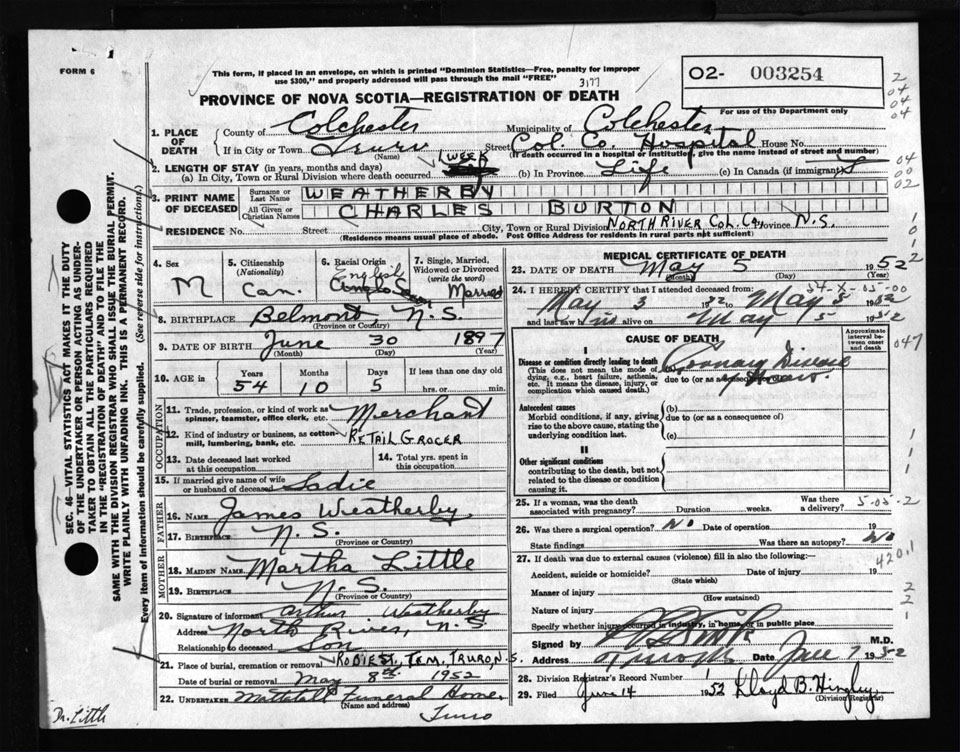 1
FORM 6
This form, if placed in an envelope, on which is printed "Dominion Statistics—Free, penalty for improper
use $300," and properly addressed will pass through the mail "FREE"
3177
O2- 003254
For use of the Department only
2
04
04
04
PROVINCE OF NOVA SCOTIA—REGISTRATION OF DEATH
1. PLACE OF DEATH
County of Colchester Municipality of Colchester
If in City or Town Truro (Name) Street Col. Co. Hospital House No.
(If death occurred in a hospital or institution, give the name instead of street and number)
2. LENGTH OF STAY (in years, months and days)
(a) In City, Town or Rural Division where death occurred 1 week (b) In Province Life (c) In Canada (if immigrant)
04
00
02
3. PRINT NAME OF DECEASED
Surname or Last Name WEATHERBY
All Given or Christian Names CHARLES BURTON
RESIDENCE No. Street City, Town or Rural Division NORTH RIVER COL. CO., Province N.S.
(Residence means usual place of abode. Post Office Address for residents in rural parts not sufficient)
SEC. 46—VITAL STATISTICS ACT MAKES IT THE DUTY
OF THE UNDERTAKER OR PERSON ACTING AS UNDER-
TAKER TO OBTAIN ALL THE PARTICULARS REQUIRED
IN THE "REGISTRATION OF DEATH" AND TO FILE THE
SAME WITH THE DIVISION REGISTRAR WHO SHALL ISSUE THE BURIAL PERMIT.
WRITE PLAINLY WITH UNFADING INK. THIS IS A PERMANENT RECORD.
Every item of information should be carefully supplied. (See reverse side for instructions)
4. Sex
M
5. Citizenship
(Nationality)
Can.
6. Racial Origin
English
7. Single, Married,
Widowed or Divorced
(write the word)
Married
8. BIRTHPLACE Belmont, N.S.
(Province or Country)
9. DATE OF BIRTH June 30 1897
(Month) (Day) (Year)
10. AGE in Years 54 Months 10 Days 5 If less than one day old
hrs. or min.
OCCUPATION
11. Trade, profession, or kind of work as
spinner, teamster, office clerk, etc. Merchant
12. Kind of industry or business, as cotton-
mill, lumbering, bank, etc. RETAIL GROCER
13. Date deceased last worked
at this occupation
14. Total yrs. spent in
this occupation
15. If married give name of wife
or husband of deceased Sadie
FATHER
16. NAME James Weatherby
17. BIRTHPLACE N.S.
(Province or Country)
MOTHER
18. MAIDEN NAME Martha Little
19. BIRTHPLACE N.S.
(Province or Country)
20. Signature of informant Arthur Weatherby
Address North River, N.S.
Relationship to deceased Son
21. Place of burial, cremation or removal ROBIE ST., CEM., TRURO, N.S.
Date of burial or removal May 8th 1952
22. UNDERTAKER Funeral Home
(Name and address)
Truro
Dr. Little
MEDICAL CERTIFICATE OF DEATH
23. DATE OF DEATH May 5 1952
(Month) (Day) (Year)
24. I HEREBY CERTIFY that I attended deceased from:
54-X-05-00
May 3 1952 to May 5 1952
and last saw him alive on May 5 1952
CAUSE OF DEATH
Approximate
interval be-
tween onset
and death
047
I
Disease or condition directly leading to death
(This does not mean the mode of
dying, e.g., heart failure, asthenia,
etc. It means the disease, injury, or
complication which caused death.)
Coronary Disease
due to (or as a consequence of)
Antecedent causes
Morbid conditions, if any, giving
rise to the above cause, stating the
underlying condition last.
(b)
due to (or as a consequence of)
(c)
II
Other significant conditions
contributing to the death, but not
related to the disease or condition
causing it.
25. If a woman, was the death
associated with pregnancy? Duration weeks. Was there
a delivery?
5-05-2
26. Was there a surgical operation? No Date of operation 19
State findings Was there an autopsy? No
27. If death was due to external causes (violence) fill in also the following:—
420.1
Accident, suicide or homicide? Date of injury 19
(State which)
Manner of injury
(How sustained)
Nature of injury
Specify whether injury occurred in industry, in home, or in public place
Signed by M.D.
Address Truro NS Date June 7 1952
28. Division Registrar's Record Number
29. Filed June 14 1952 Lloyd B. Hingley
(Division Registrar)